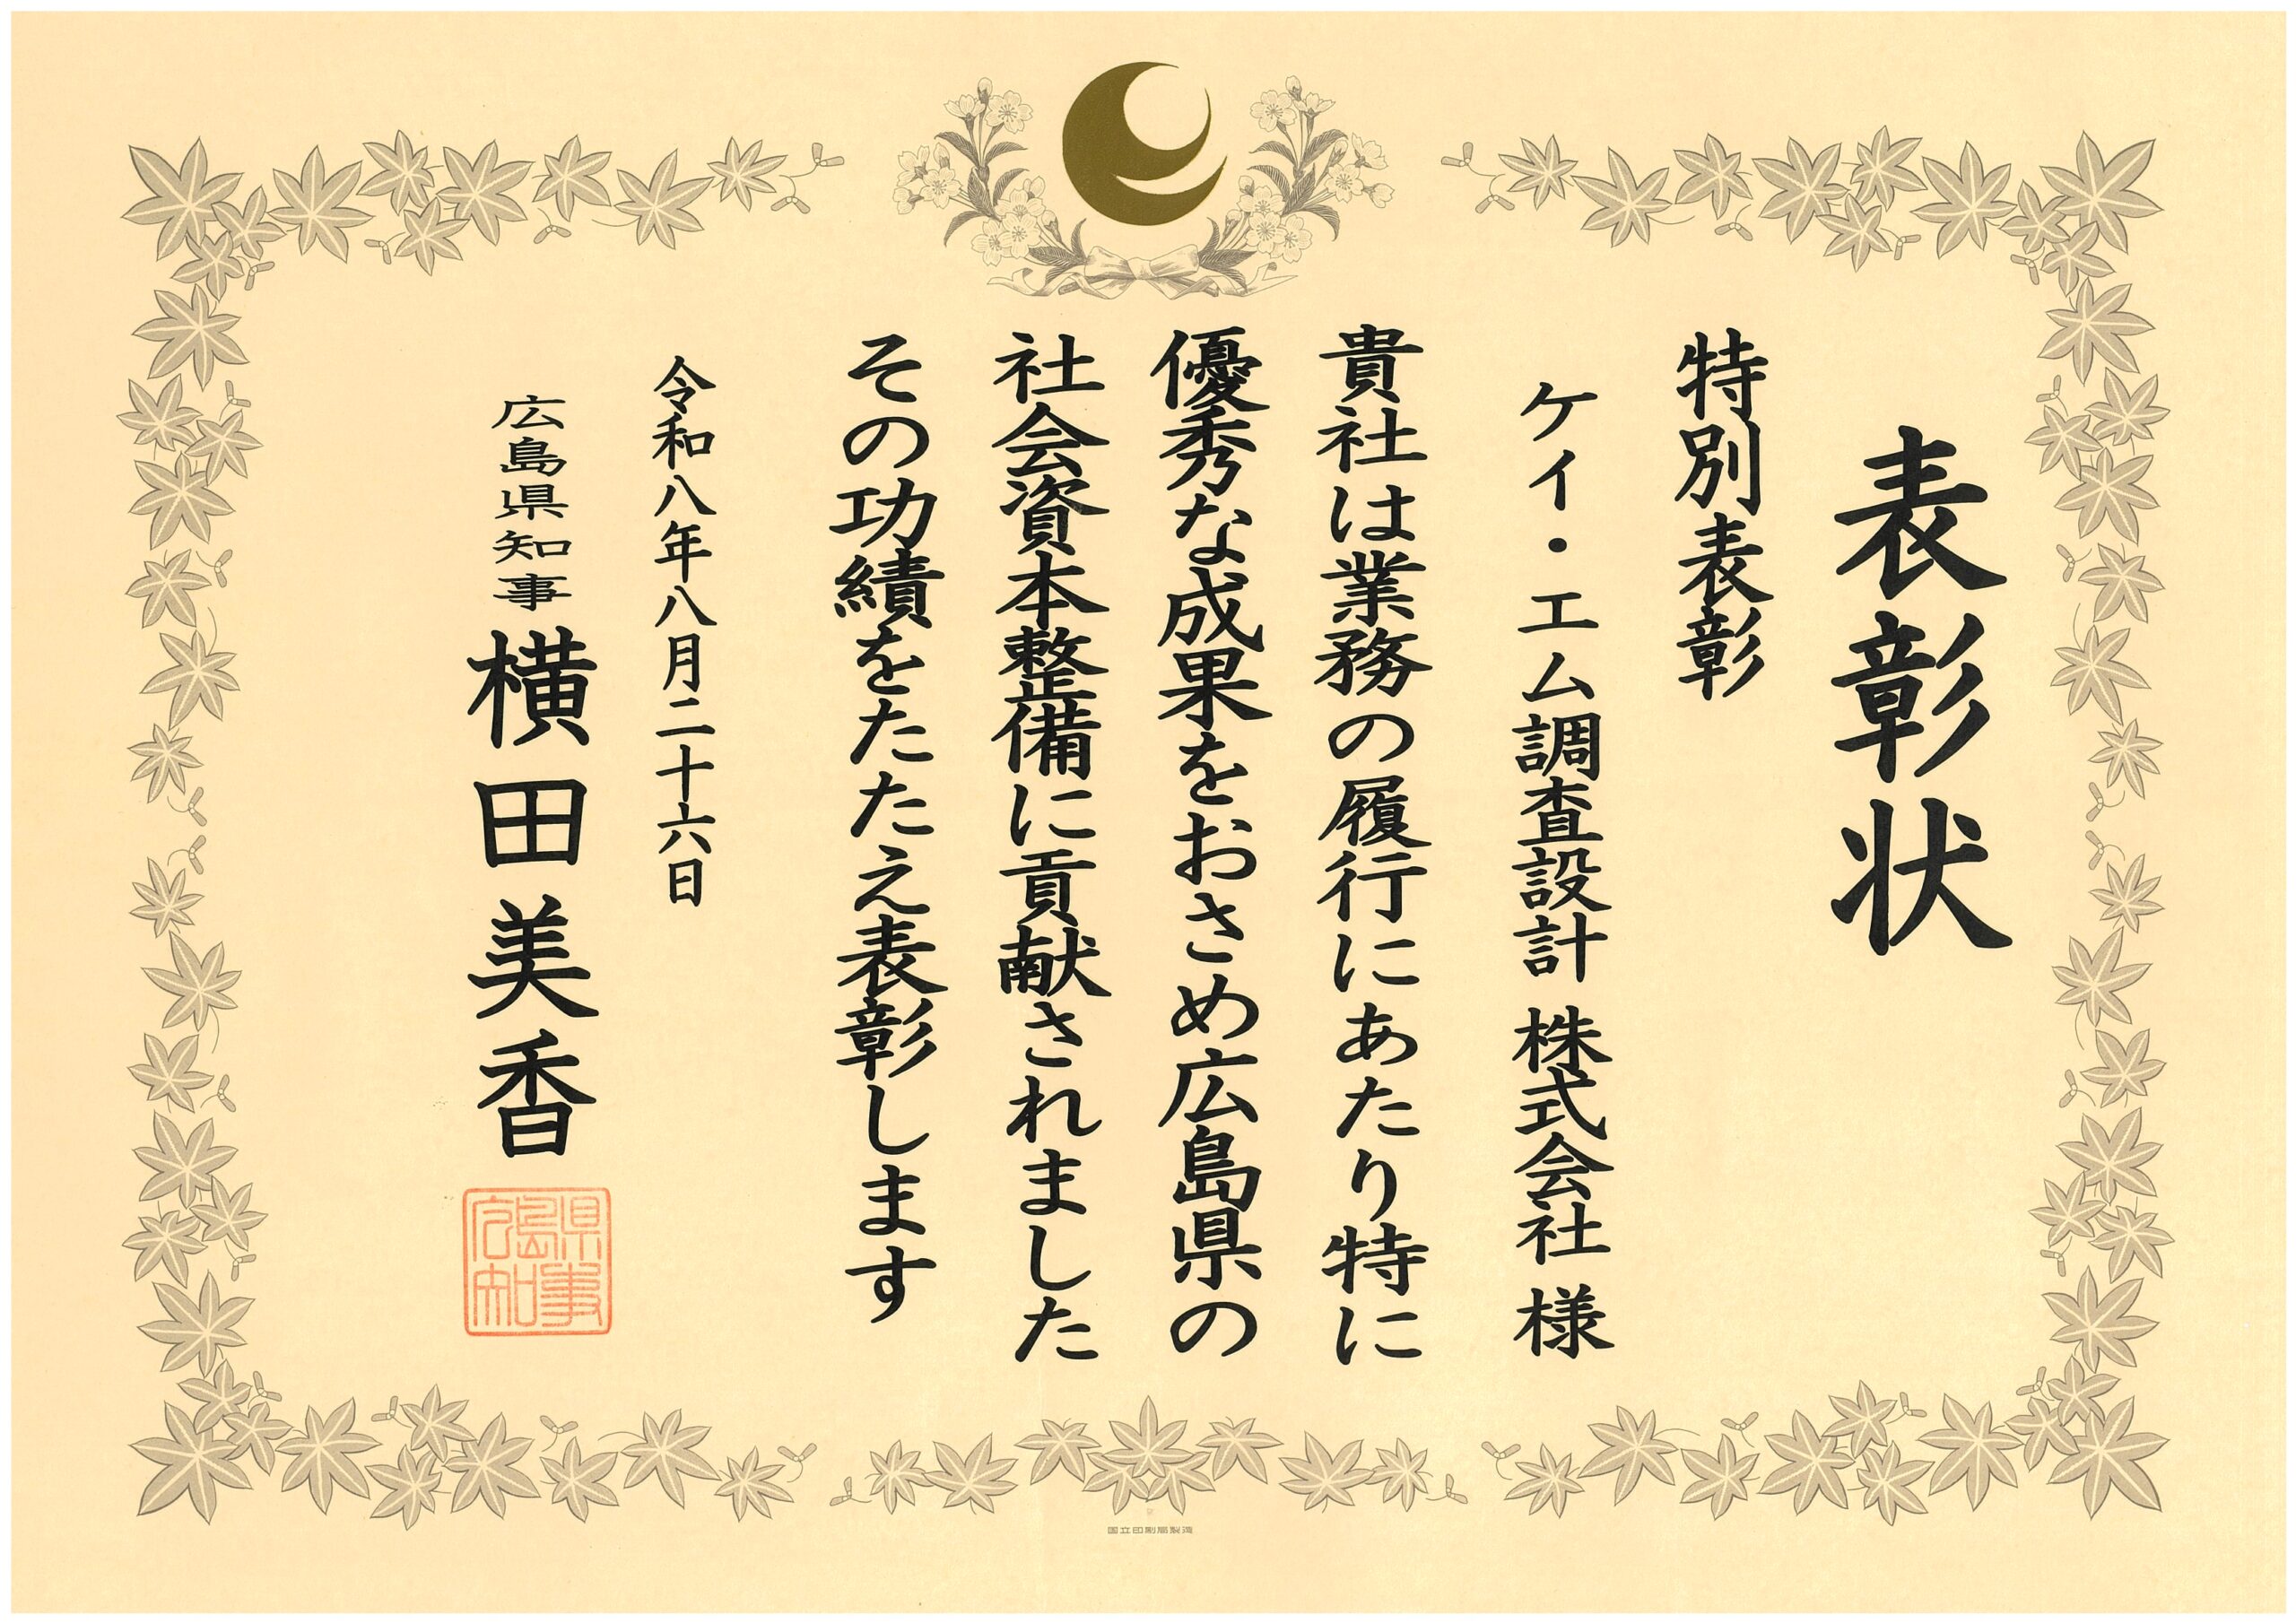 表彰状
特別表彰
ケイ・エム調査設計 株式会社 様
貴社は業務の履行にあたり特に
優秀な成果をおさめ広島県の
社会資本整備に貢献されました
その功績をたたえ表彰します
令和八年八月二十六日
広島県知事 横田美香
広島県知事
国立印刷局製造